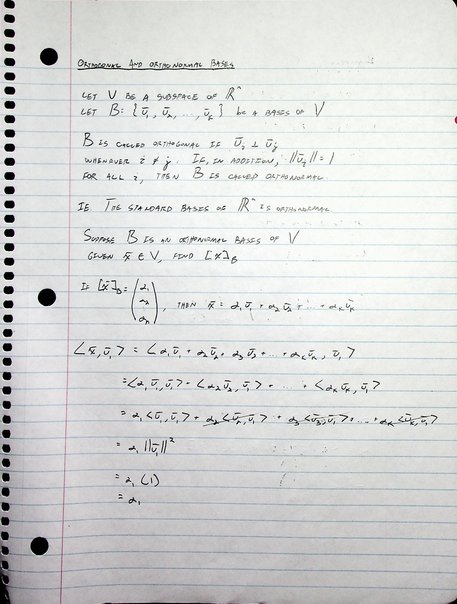 ORTHOGONAL AND ORTHONORMAL BASES
LET V BE A SUBSPACE OF ℝⁿ
LET B: {v̄₁, v̄₂, ..., v̄ₖ} be a BASES OF V
B IS CALLED ORTHOGONAL IF v̄ᵢ ⊥ v̄ⱼ
WHENEVER i ≠ j. IF, IN ADDITION, ||v̄ᵢ|| = 1
FOR ALL i, THEN B IS CALLED ORTHONORMAL
IE THE STANDARD BASES OF ℝⁿ IS ORTHONORMAL
SUPPOSE B IS AN ORTHONORMAL BASES OF V
GIVEN x̄ ∈ V, FIND [x̄]_B
IF [x̄]_B = (α₁ α₂ αₖ), THEN x̄ = α₁v̄₁ + α₂v̄₂ + ... + αₖv̄ₖ
⟨x̄, v̄₁⟩ = ⟨α₁v̄₁ + α₂v̄₂ + α₃v̄₃ + ... + αₖv̄ₖ, v̄₁⟩
= ⟨α₁v̄₁, v̄₁⟩ + ⟨α₂v̄₂, v̄₁⟩ + ... + ⟨αₖv̄ₖ, v̄₁⟩
= α₁⟨v̄₁, v̄₁⟩ + α₂⟨v̄₂, v̄₁⟩ + α₃⟨v̄₃, v̄₁⟩ + ... + αₖ⟨v̄ₖ, v̄₁⟩
= α₁ ||v̄₁||²
= α₁ (1)
= α₁